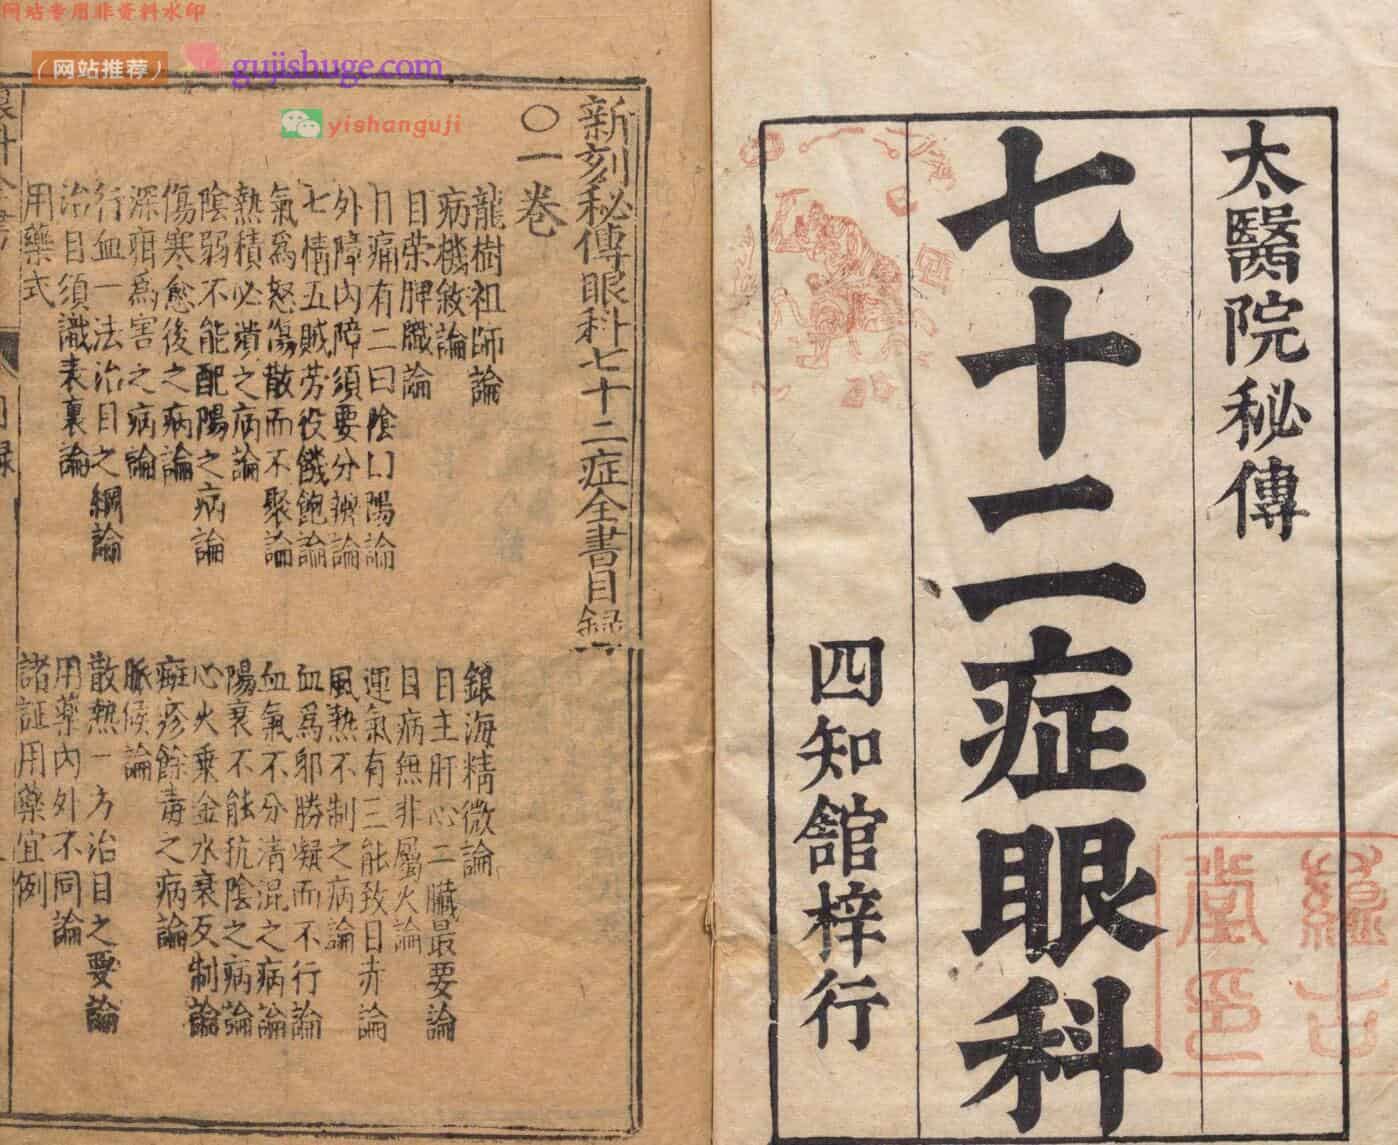 太醫院秘傳
七十二症眼科
四知舘梓行
新刻秘傳眼科七十二症全書目録
〇一卷
龍樹祖師論
銀海精微論
病機敘論
目主肝心二臟最要論
目荣脾臟論
目病無非屬火論
目痛有二曰陰曰陽論
運氣有三能致目赤論
外障内障須要分辨論
風熱不制之病論
七情五賊劳役饑飽論
血爲邪勝凝而不行論
氣爲怒傷散而不聚論
血氣不分淸混之病論
熱積必潰之病論
陽衰不能抗陰之病論
陰弱不能配陽之病論
心火乗金水衰反制論
傷寒愈後之病論
癍疹餘毒之病論
深疳爲害之病論
脈候論
行血一法治目之綱論
散熱一方治目之要論
治目須識表裏論
用藥内外不同論
用藥式
諸証用藥宜例
网站专用非资料水印
（网站推荐）
gujishuge.com
yishanguji